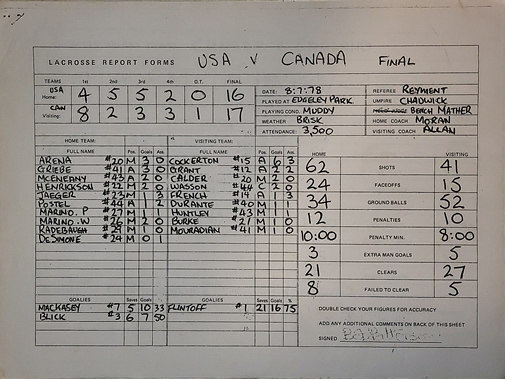 LACROSSE REPORT FORMS USA V CANADA FINAL
TEAMS 1st 2nd 3rd 4th O.T. FINAL
USA
Home: 4 5 5 2 0 16
CAN
Visiting: 8 2 3 3 1 17
DATE: 8:7:78
PLAYED AT EDGELEY PARK
PLAYING COND. MUDDY
WEATHER BRISK
ATTENDANCE: 3,500
REFEREE REYMENT
UMPIRE CHADWICK
BENCH MATHER
HOME COACH MORAN
VISITING COACH ALLAN
HOME TEAM: VISITING TEAM:
FULL NAME Pos. Goals As. FULL NAME Pos. Goals As.
ARENA #20 M 3 0 COCKERTON #15 A 6 3
GRIEBE #41 A 3 0 GRANT #12 A 2 2
MCENEANY #43 A 2 0 CALDER #20 M 2 0
HENRICKSON #22 M 2 0 WASSON #44 C 2 0
JAEGER #23 M 1 3 FRENCH #14 A 1 3
POSTEL #44 A 1 2 DURANTE #40 M 1 1
MARINO. P #27 M 1 1 HUNTLEY #43 M 1 1
MARINO. W #26 M 2 0 BURKE #21 M 1 0
RADEBAUGH M 1 0 MOURADIAN #41 M 1 0
DESIMONE #24 M 0 1
GOALIES Saves Goals % GOALIES Saves Goals %
MACKASEY #7 5 10 33 FLINTOFF #1 21 16 75
BLICK #3 6 7 50
HOME VISITING
62 SHOTS 41
24 FACEOFFS 15
34 GROUND BALLS 52
12 PENALTIES 10
10:00 PENALTY MIN. 8:00
3 EXTRA MAN GOALS 5
21 CLEARS 27
8 FAILED TO CLEAR 5
DOUBLE CHECK YOUR FIGURES FOR ACCURACY
ADD ANY ADDITIONAL COMMENTS ON BACK OF THIS SHEET
SIGNED